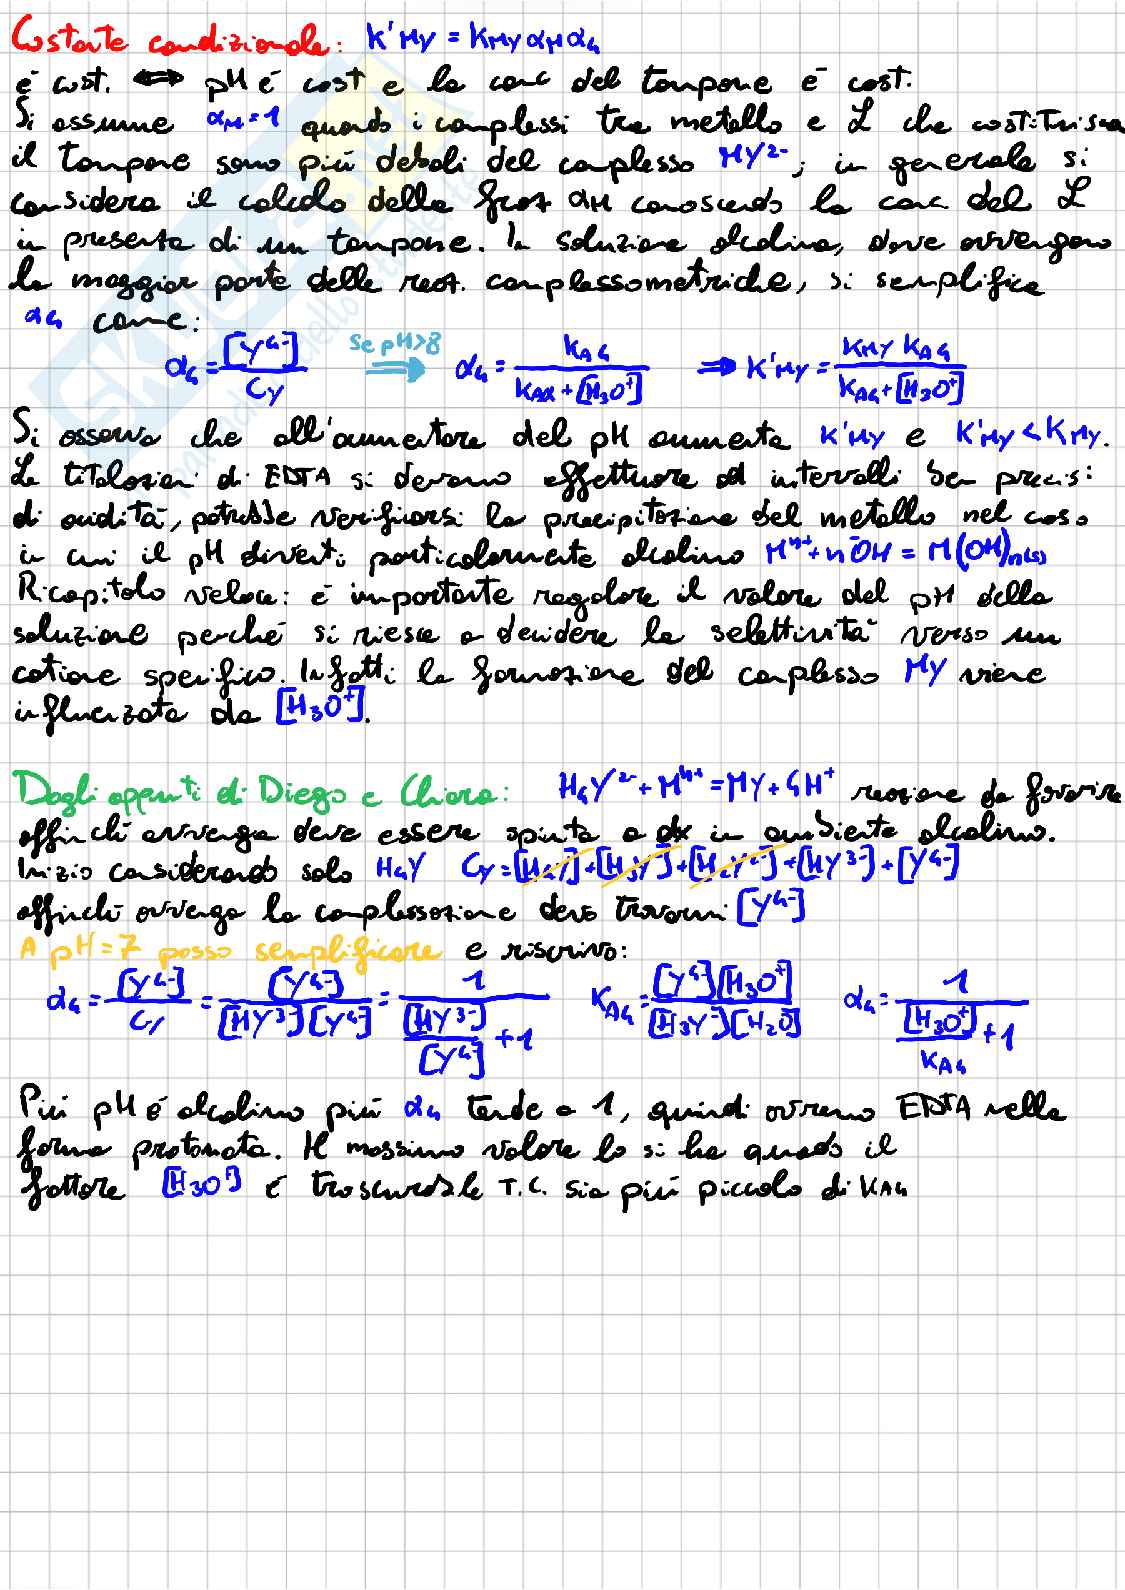 Costante condizionale: K'MY = KMY αM α4
è cost. ⟺ pH è cost e la conc del tampone è cost.
Si assume αM=1 quando i complessi tra metallo e L che costituisca
il tampone sono più deboli del complesso MY²⁻; in generale si
considera il calcolo della fraz αM conoscendo la conc. del L
in presenza di un tampone. In soluzione alcalina, dove avvengono
la maggior parte delle reaz. complessometriche, si semplifica
α4 come:
α4 = [Y⁴⁻]/CY ⟹ (Se pH>8) α4 = KA4/(KA4+[H3O⁺]) ⟹ K'MY = KMY KA4/(KA4+[H3O⁺])
Si osserva che all'aumentare del pH aumenta K'MY e K'MY < KMY.
Le titolazioni di EDTA si devono effettuare ad intervalli ben precisi
di acidità, potrebbe verificarsi la precipitazione del metallo nel caso
in cui il pH diventi particolarmente alcalino Mⁿ⁺ + n⁻OH = M(OH)n(s)
Ricapitolo veloce: è importante regolare il valore del pH della
soluzione perché si riesce a decidere la selettività verso un
catione specifico. Infatti la formazione del complesso MY viene
influenzata da [H3O⁺].
Dagli appunti di Diego e Chiara: H4Y²⁻ + Mⁿ⁺ = MY + 4H⁺ reazione da favorire
affinché avvenga deve essere spinta a dx in ambiente alcalino.
Inizio considerando solo H4Y CY = [H4Y] + [H3Y⁻] + [H2Y²⁻] + [HY³⁻] + [Y⁴⁻]
affinché avvenga la complessazione devo trovarmi [Y⁴⁻]
A pH=7 posso semplificare e riscrivo:
α4 = [Y⁴⁻]/CY = [Y⁴⁻]/([HY³⁻][Y⁴⁻]) = 1/([HY³⁻]/[Y⁴⁻] + 1) KA4 = [Y⁴⁻][H3O⁺]/([H3Y⁻][H2O]) α4 = 1/([H3O⁺]/KA4 + 1)
Più pH è alcalino più α4 tende a 1, quindi avremo EDTA nella
forma protonata. Il massimo valore lo si ha quando il
fattore [H3O⁺] è trascurabile T.C. sia più piccolo di KA4